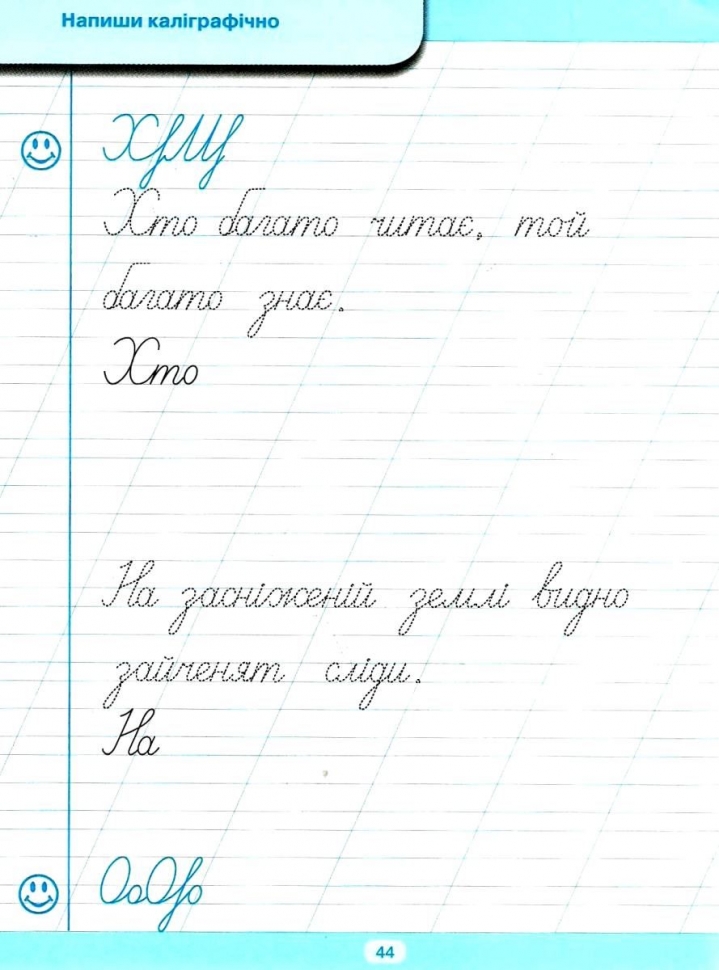 Напиши каліграфічно
Хто багато читає, той
багато знає.
Хто
На засніженій землі видно
зайченят сліди.
На
44